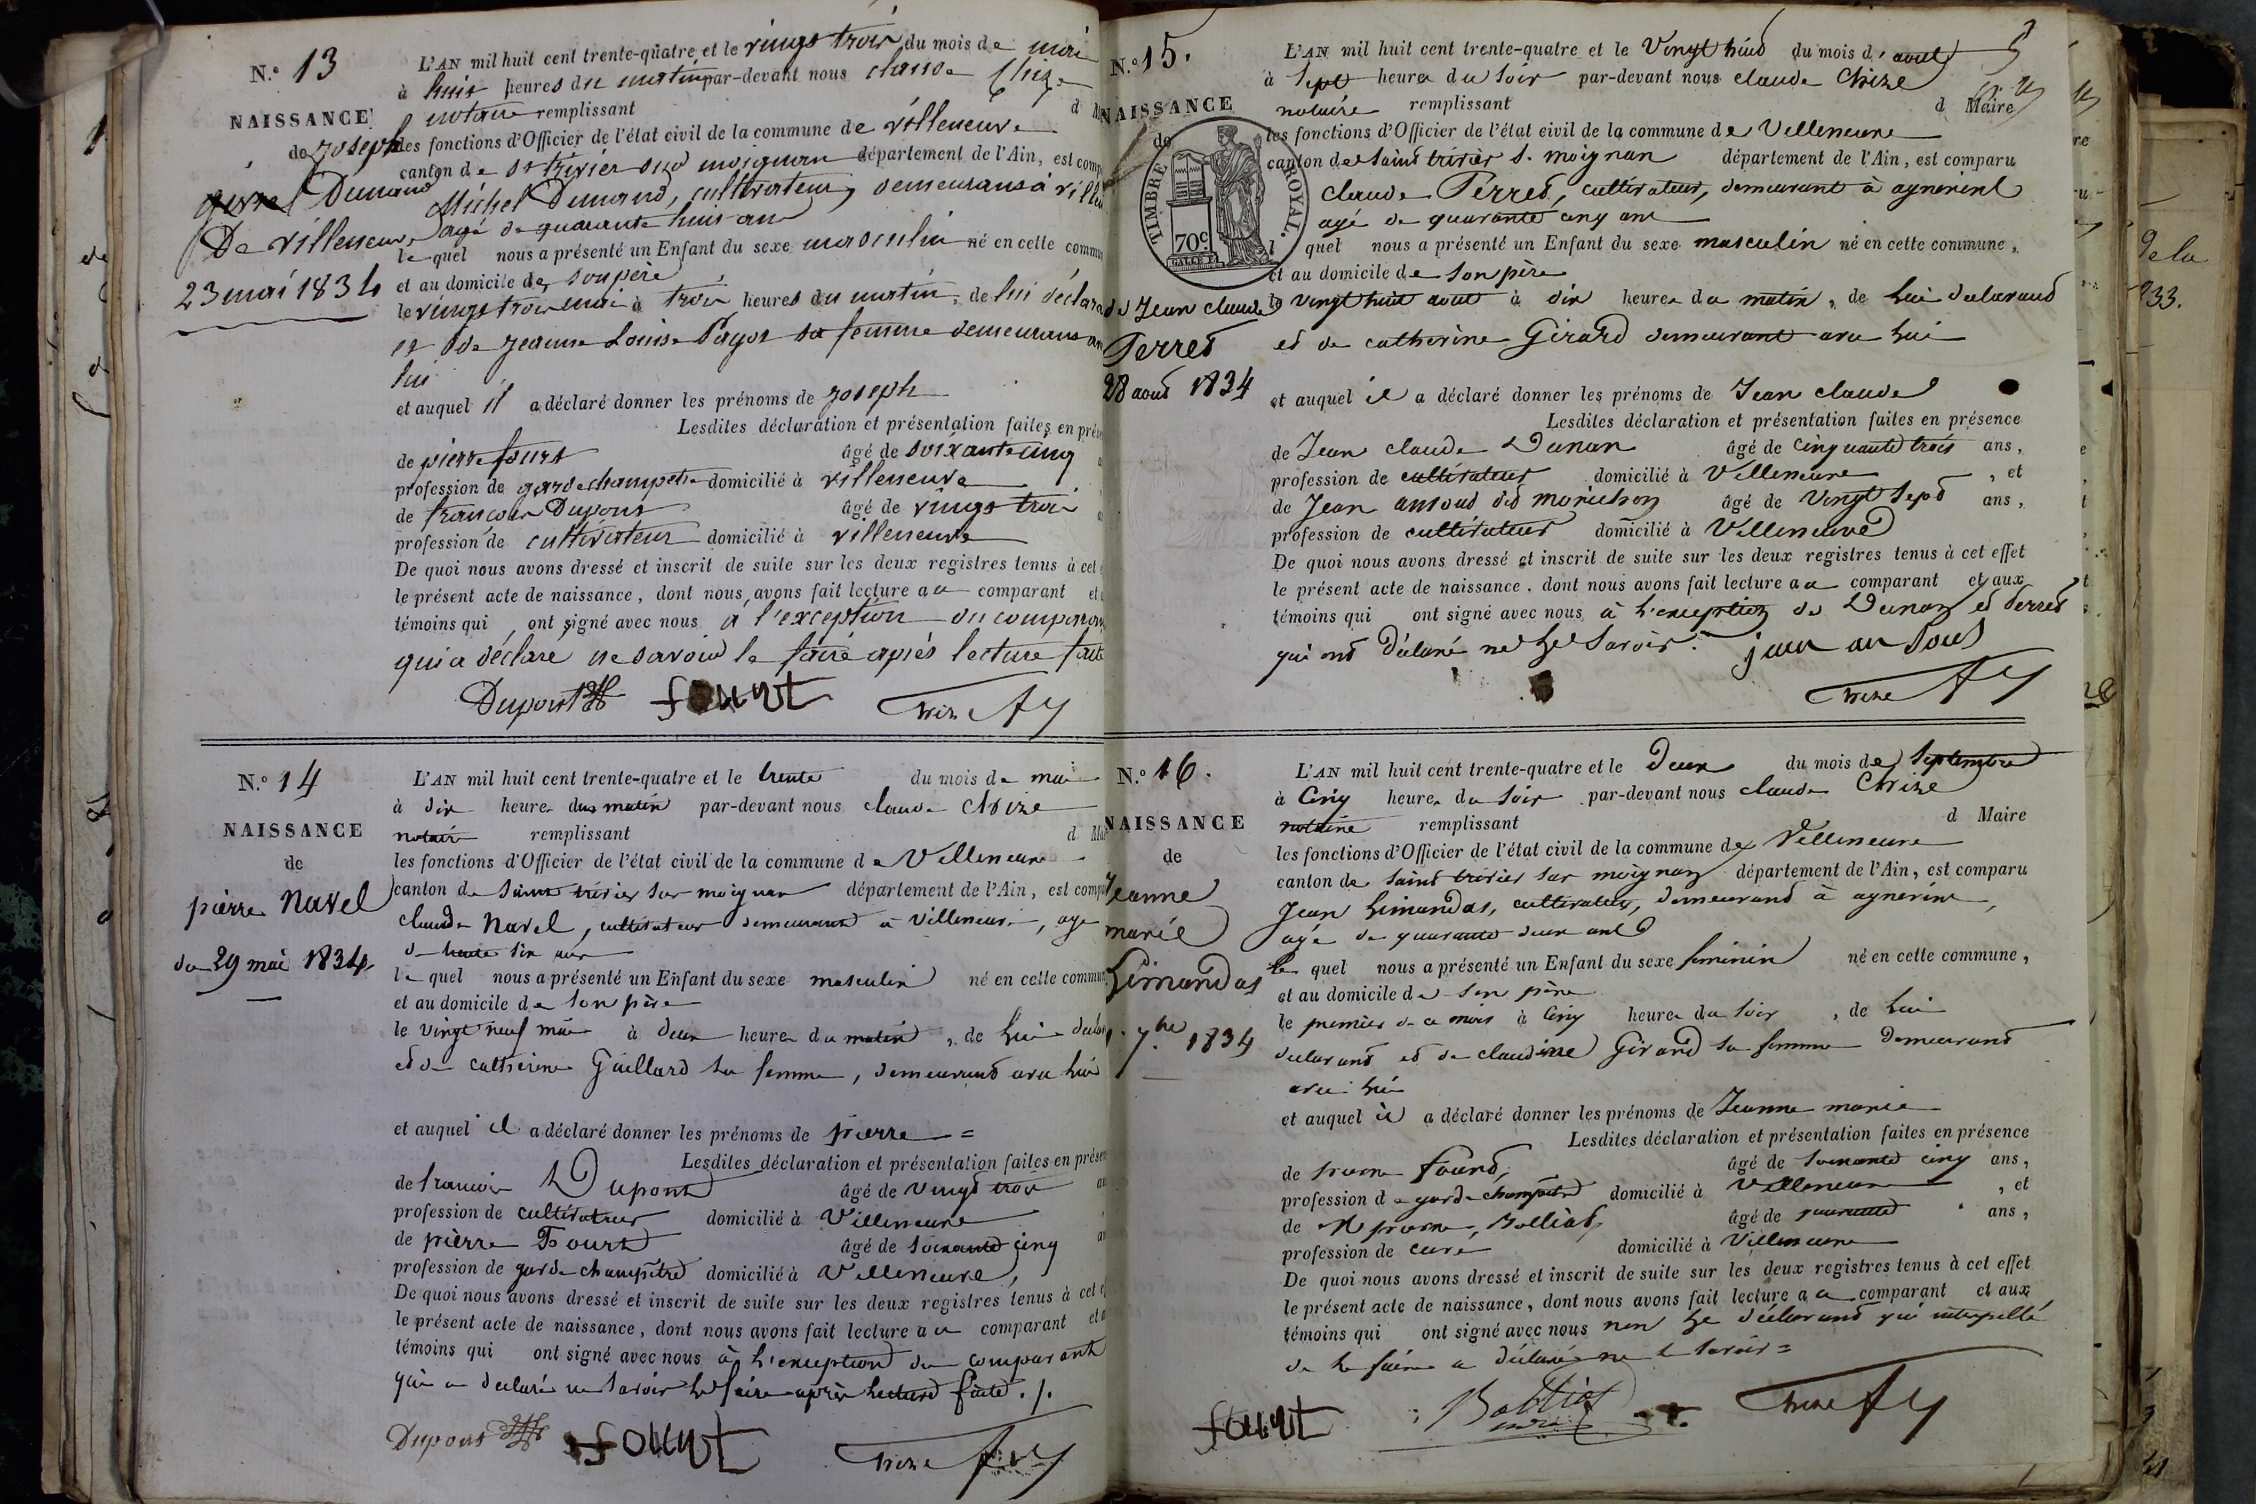 N.º 13
NAISSANCE
de Joseph
Dunand
De villeneuve
23 mai 1834
L'AN mil huit cent trente-quatre et le vingt trois du mois de mai
à huit heures du matin par-devant nous claude Chize
notaire remplissant d M
les fonctions d'Officier de l'état civil de la commune de villeneuve
canton de st trivier sur moignan département de l'Ain, est comp
Michel Dunand, cultivateur, demeurant à ville
agé de quarante huit ans
le quel nous a présenté un Enfant du sexe masculin né en cette commu
et au domicile de son père
le vingt trois mai à trois heures du matin, de lui déclara
et de jeanne Louise Payot sa femme demeurant av
lui
et auquel il a déclaré donner les prénoms de joseph
Lesdites déclaration et présentation faites en prés
de pierre fourt âgé de soixante cinq
profession de garde champetre domicilié à villeneuve
de francois Dupont âgé de vingt trois
profession de cultivateur domicilié à villeneuve
De quoi nous avons dressé et inscrit de suite sur les deux registres tenus à cet
le présent acte de naissance, dont nous avons fait lecture au comparant et
témoins qui ont signé avec nous à l'exception du comparant
qui a déclaré ne savoir le faire après lecture faite
Dupont fourt Chize
N.º 14
NAISSANCE
de
pierre Navel
du 29 mai 1834.
L'AN mil huit cent trente-quatre et le trente du mois de mai
à dix heures du matin par-devant nous claude Chize
notaire remplissant d M
les fonctions d'Officier de l'état civil de la commune de Villeneuve
canton de saint trivier sur moignan département de l'Ain, est comp
claude Navel, cultivateur demeurant à Villeneuve, agé
de trente six ans
le quel nous a présenté un Enfant du sexe masculin né en cette commun
et au domicile de son père
le vingt neuf mai à deux heures du matin, de lui décla
et de catherine Gaillard sa femme, demeurant avec lui
et auquel il a déclaré donner les prénoms de pierre =
Lesdites déclaration et présentation faites en prése
de francois Dupont âgé de vingt trois
profession de cultivateur domicilié à Villeneuve
de pierre Fourt âgé de soixante cinq
profession de garde champêtre domicilié à Villeneuve,
De quoi nous avons dressé et inscrit de suite sur les deux registres tenus à cet
le présent acte de naissance, dont nous avons fait lecture au comparant et
témoins qui ont signé avec nous à l'exception du comparant
qui a déclaré ne savoir le faire après lecture faite ./.
Dupont fourt Chize
N.º 15.
NAISSANCE
de
TIMBRE ROYAL.
70c
de Jean claude
Ferret
28 aout 1834
L'AN mil huit cent trente-quatre et le Vingt huit du mois d'aout
à sept heures du soir par-devant nous claude Chize
notaire remplissant d Maire
les fonctions d'Officier de l'état civil de la commune de Villeneuve
canton de saint trivier s. moignan département de l'Ain, est comparu
claude Ferret, cultivateur, demeurant à agnerins
agé de quarante cinq ans
quel nous a présenté un Enfant du sexe masculin né en cette commune,
et au domicile de son père
le vingt huit aout à dix heures du matin, de lui déclarant
et de catherine Girard demeurant avec lui
et auquel il a déclaré donner les prénoms de Jean claude
Lesdites déclaration et présentation faites en présence
de Jean claude Dunan âgé de cinquante trois ans,
profession de cultivateur domicilié à Villeneuve, et
de Jean ansoud dit âgé de vingt sept ans,
profession de cultivateur domicilié à Villeneuve
De quoi nous avons dressé et inscrit de suite sur les deux registres tenus à cet effet
le présent acte de naissance, dont nous avons fait lecture au comparant et aux
témoins qui ont signé avec nous à l'exception de Dunan et Ferret
qui ont déclaré ne le savoir. jean ansoud
Chize
N.º 16.
NAISSANCE
de
Jeanne
marie
Limandas
1. 7bre 1834
L'AN mil huit cent trente-quatre et le Deux du mois de septembre
à cinq heures du soir par-devant nous claude Chize
notaire remplissant d Maire
les fonctions d'Officier de l'état civil de la commune de Villeneuve
canton de saint trivier sur moignan département de l'Ain, est comparu
Jean Limandas, cultivateur, demeurant à agnerins,
agé de quarante deux ans
le quel nous a présenté un Enfant du sexe feminin né en cette commune,
et au domicile de son père
le premier de ce mois à cinq heures du soir, de lui
déclarant et de claudine Girard sa femme demeurant
avec lui
et auquel il a déclaré donner les prénoms de Jeanne marie
Lesdites déclaration et présentation faites en présence
de pierre fourt, âgé de soixante cinq ans,
profession de garde champêtre domicilié à Villeneuve, et
de Mr pierre, Bolliat, âgé de quarante ans,
profession de curé domicilié à Villeneuve
De quoi nous avons dressé et inscrit de suite sur les deux registres tenus à cet effet
le présent acte de naissance, dont nous avons fait lecture au comparant et aux
témoins qui ont signé avec nous non le déclarant qui interpellé
de le faire a déclaré ne le savoir =
fourt Chize
de la
33.